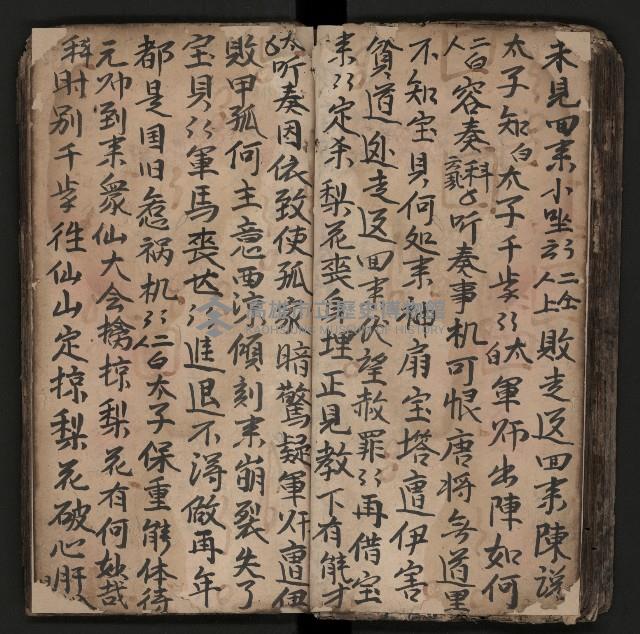 未見回耒小坐 二仝人上 敗走返回耒陳説
太子知 白 太子千歲 太白 軍师出陳如何
二人白 容奏 科 听奏事机可恨唐将無道
不知宝貝何処耒 扇宝塔遭伊害
貧道処走返回耒伏望赦罪 再借宝
耒 定杀梨花喪 埋正見教下有能才
太 听奏因依致使孤家暗驚疑軍师遭伊
敗甲孤何主意西涼傾刻耒崩裂失了
宝貝 軍馬喪 進退不得做再年
都是国旧惹祸机 二人白 太子保重能体待
元帅到耒衆仙大会擒掠梨花有何妙哉
科 时别千歲往仙山定掠梨花破心肝
高雄市立歷史博物館
KAOHSIUNG MUSEUM OF HISTORY